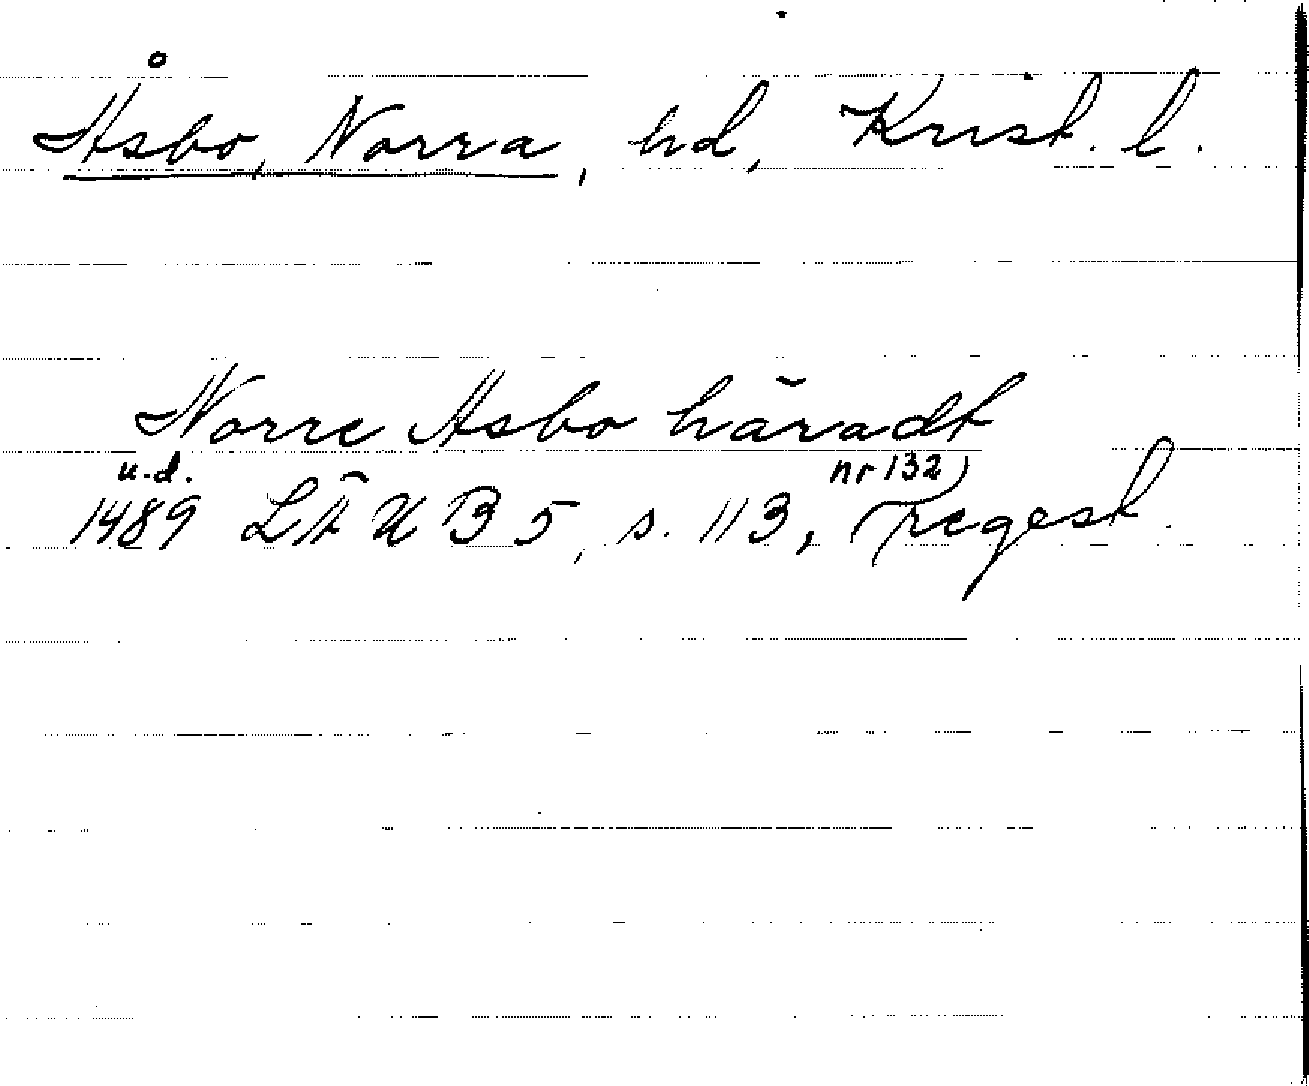 Åsbo, Norra, hd, Krist. l.
Norre Asbo häradt
u.d. nr 132)
1489 LÄUB 5, s. 113, (regest.